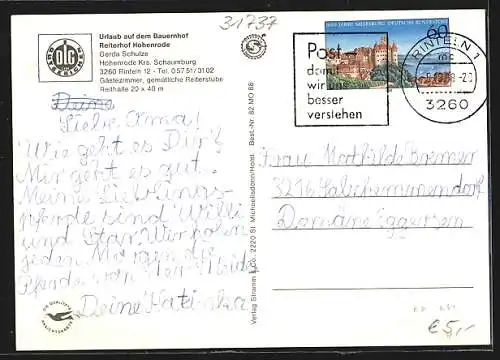 31737
Urlaub auf dem Bauernhof
Reiterhof Hohenrode
Gerda Schulze
Hohenrode Krs. Schaumburg
3260 Rinteln 12 - Tel. 05751/3102
Gästezimmer, gemütliche Reiterstube
Reithalle 20 x 40 m
DLG
Post
damit
wir uns
besser
verstehen
60
RINTELN 1
3260
Deine
Liebe Oma!
Wie geht es Dir?
Mir geht es gut.
Meine Lieblings-
pferde sind Willi
und Star. Wir holen
jeden Morgen die
Pferde von der Weide
Deine Katinka
Frau Mathilde Bremer
3216 Salzhemmendorf
Domäne Eggersen
Verlag Stramm & Co., 2220 St. Michaelisdonn/Holst. Best.-Nr. 82 MO 88
€ 5,-